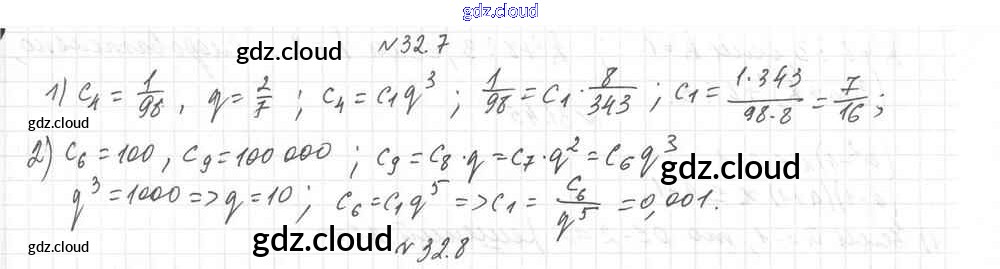 gdz.cloud
№32.7
gdz.cloud
gdz.cloud
1) c₄ = 1/98, q = 2/7; c₄ = c₁q³; 1/98 = c₁ · 8/343; c₁ = 1·343/98·8 = 7/16;
gdz.cloud
gdz.cloud
2) c₆ = 100, c₉ = 100 000; c₉ = c₈ · q = c₇ · q² = c₆q³
gdz.cloud
q³ = 1000 => q = 10; c₆ = c₁q⁵ => c₁ = c₆/q⁵ = 0,001.
gdz.cloud
gdz.cloud
gdz.cloud
№32.8